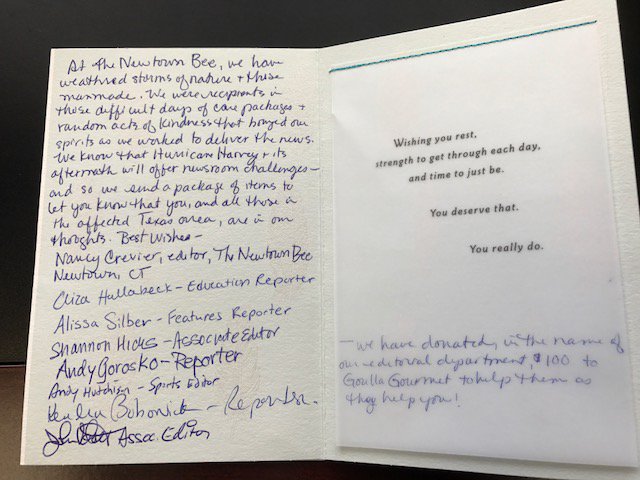 At The Newtown Bee, we have
weathred storms of nature + those
manmade. We were recipients in
those difficult days of care packages +
random acts of kindness that boyed our
spirits as we worked to deliver the news.
We know that Hurricane Harvey + its
aftermath will offer newsroom challenges —
and so we send a package of items to
let you know that you, and all those in
the affected Texas area, are in our
thoughts. Best Wishes —
Nancy Crevier, editor, The Newtown Bee
Newtown, CT
Eliza Hallabeck - Education Reporter
Alissa Silber - Features Reporter
Shannon Hicks - Associate Editor
Andy Gorosko - Reporter
Andy Hutchison - Sports Editor
Kendra Bobowick - Reporter.
Assoc. Editor
Wishing you rest,
strength to get through each day,
and time to just be.
You deserve that.
You really do.
— we have donated, in the name of
our editorial department, $100 to
Goulla Gourmet to help them as
they help you!